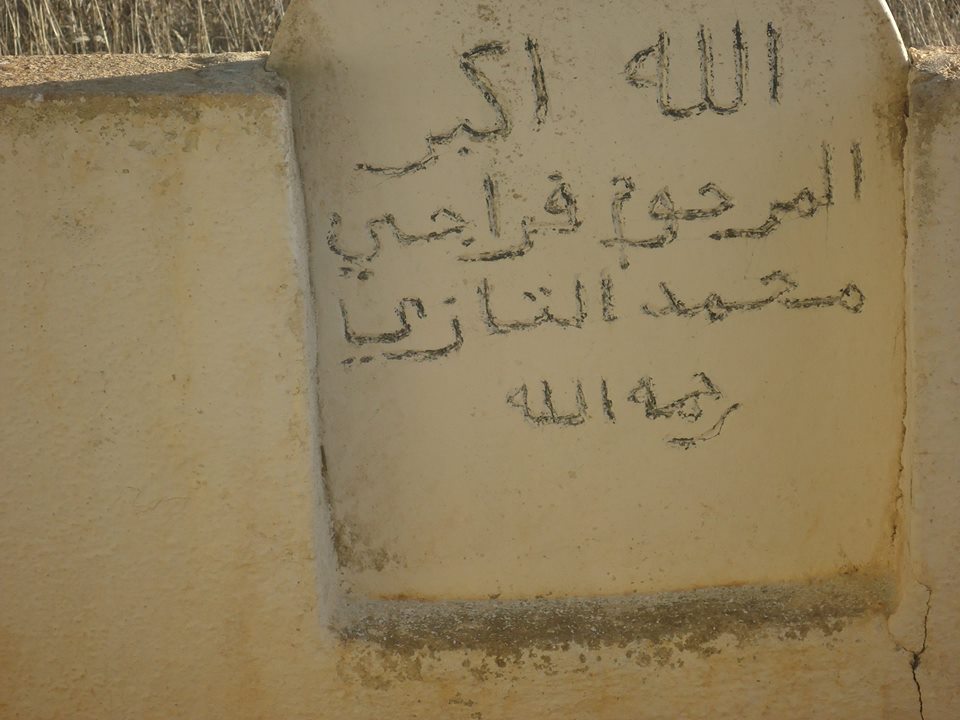 الله اكبر
المرحوم فراجي
محمد التازي
رحمه الله